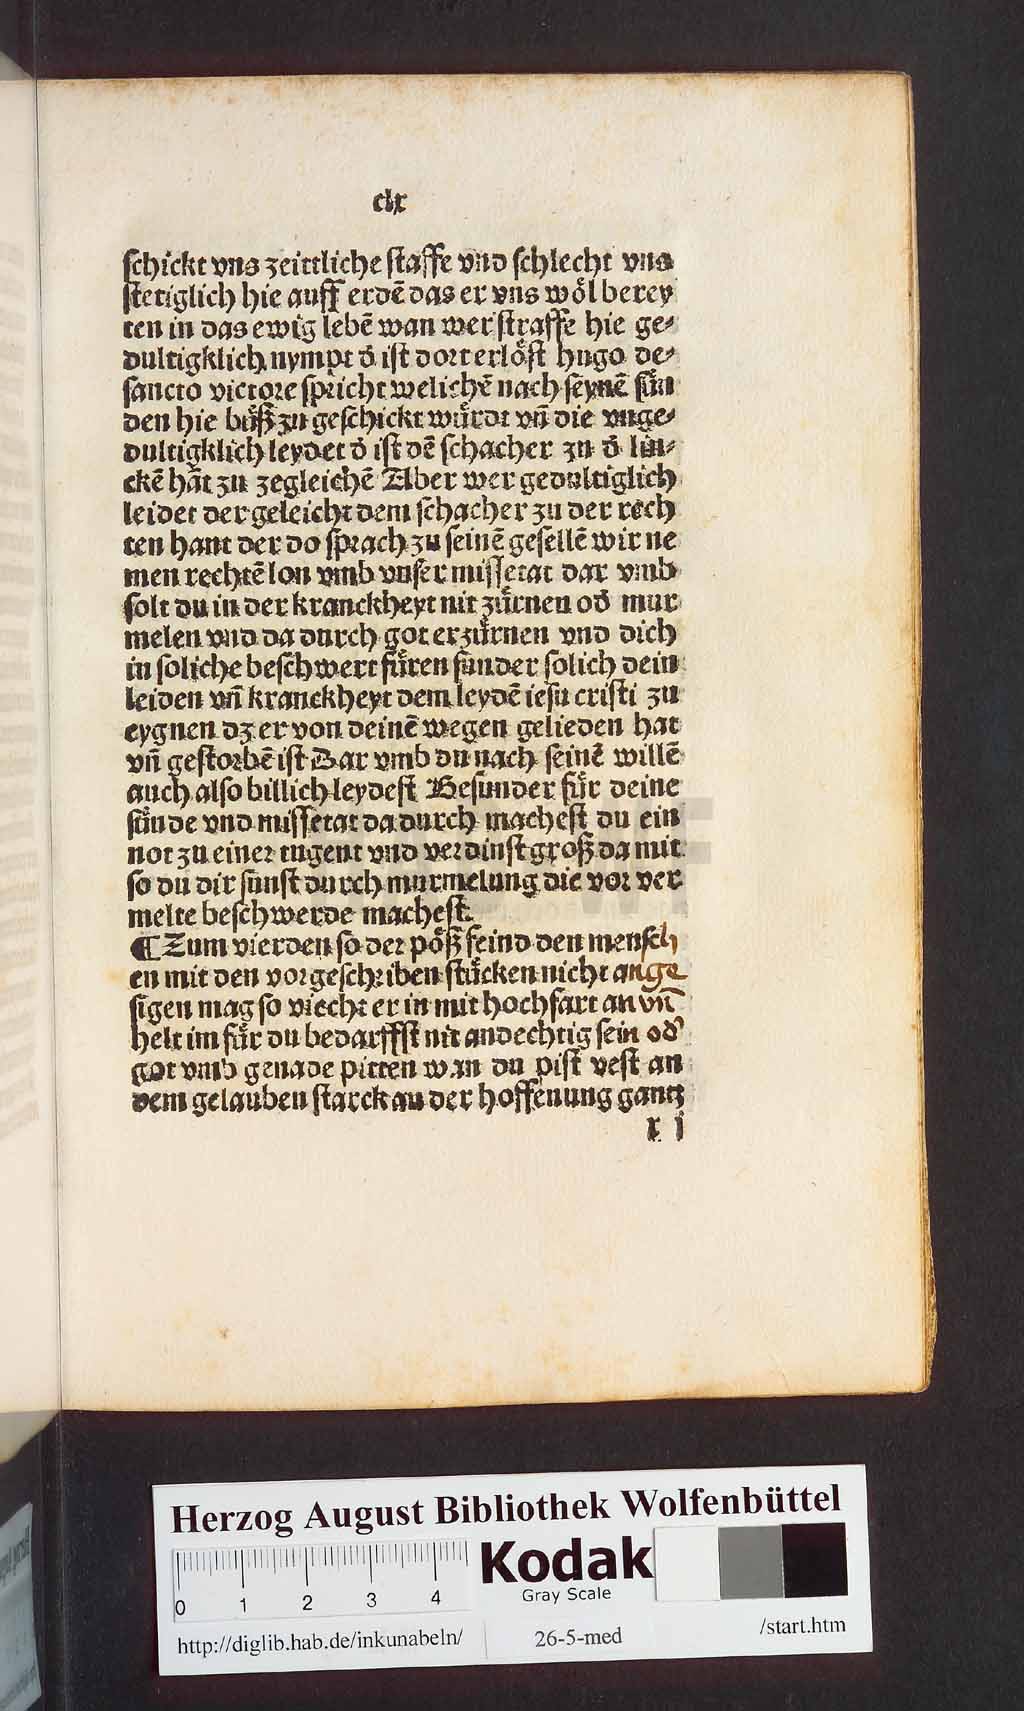 clx
schickt vns zeittliche staffe vnd schlecht vns
stetiglich hie auff erdē das er vns wöl berey
ten in das ewig lebē wan wer straffe hie ge⸗
dultigklich nympt d̄ ist dort erlöst hugo de⸗
sancto victore spricht welichē nach seynē sün
den hie büß zu geschickt würdt vn̄ die vnge⸗
dultigklich leydet d̄ ist dē schacher zu d̄ lin⸗
ckē hāt zu zegleichē Aber wer gedultiglich
leidet der geleicht dem schacher zu der rech
ten hant der do sprach zu seinē gesellē wir ne
men rechtē lon vmb vnser missetat dar vmb
solt du in der kranckheyt nit zürnen od̄ mur
melen vnd da durch got erzürnen vnd dich
in soliche beschwert füren sunder solich dein
leiden vn̄ kranckheyt dem leydē iesu cristi zu
eygnen dz er von deinē wegen gelieden hat
vn̄ gestorbē ist Dar vmb du nach seinē willē
auch also billich leydest Besunder für deine
sünde vnd missetat da durch machest du ein
not zu einer tugent vnd verdinst groß da mit
so du dir sunst durch murmelung die vor ver
melte beschwerde machest.
¶ Zum vierden so der pöß feind den mensch
en mit den vorgeschriben stücken nicht ange
sigen mag so viecht er in mit hochfart an vn̄
helt im für du bedarffst nit andechtig sein od̄
got vmb genade pitten wan du pist vest an
dem gelauben starck an der hoffenung gantz
x j
Herzog August Bibliothek Wolfenbüttel
0 1 2 3 4
Kodak
Gray Scale
http://diglib.hab.de/inkunabeln/
26-5-med
/start.htm